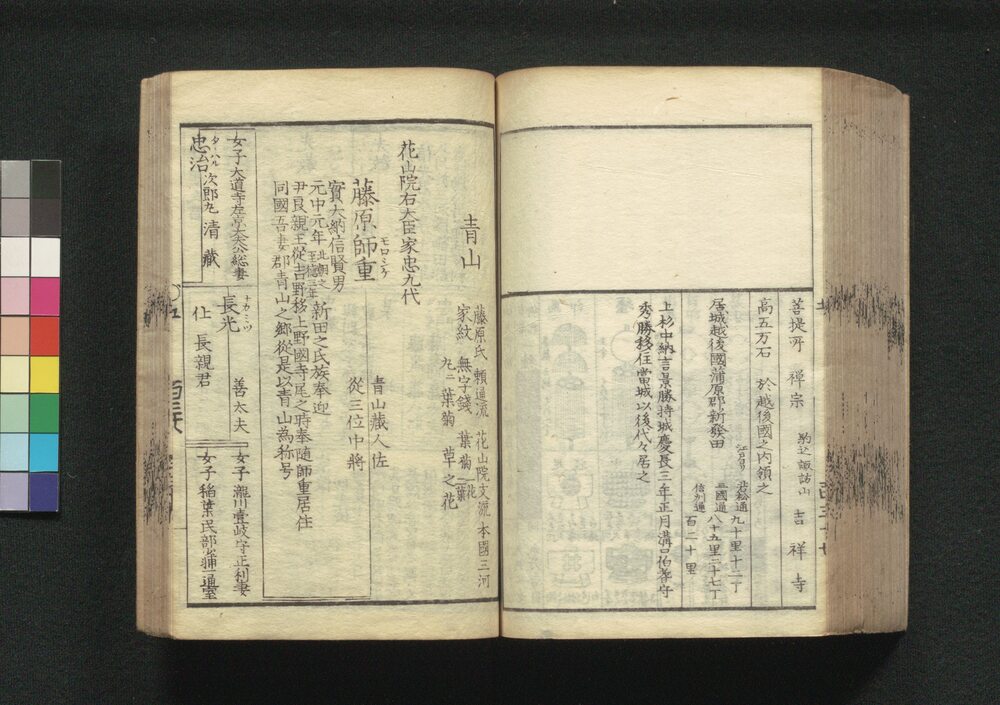 菩提所 禅宗 駒込諏訪山 吉祥寺
高五万石 於越後國之内領之
居城越後國蒲原郡新發田
江戸ヨリ
會津通九十里十二丁
三國通八十五里二十七丁
信州通百二十里
上杉中納言景勝持城慶長三年正月溝口伯耆守
秀勝移住當城以後代々居之
青山
藤原氏 頼通流 花山院支流 本國三河
家紋 無字錢 葉菊 一花一葉
丸ニ葉菊 草之花
花山院右大臣家忠九代
藤原師重 モロシゲ
青山藏人佐
從三位中將
實大納信賢男
元中元年 北朝之至德元年 新田之氏族奉迎
尹良親王從吉野移上野國寺尾之時奉隨師重居住
同國吾妻郡青山之郷從是以青山為称号
女子 大道寺左京大夫公総妻
忠治 タヾハル 次郎九 清藏
長光 ナカミツ 善太夫
仕 長親君
女子 瀧川壹岐守正利妻
女子 稲葉民部少輔通重室